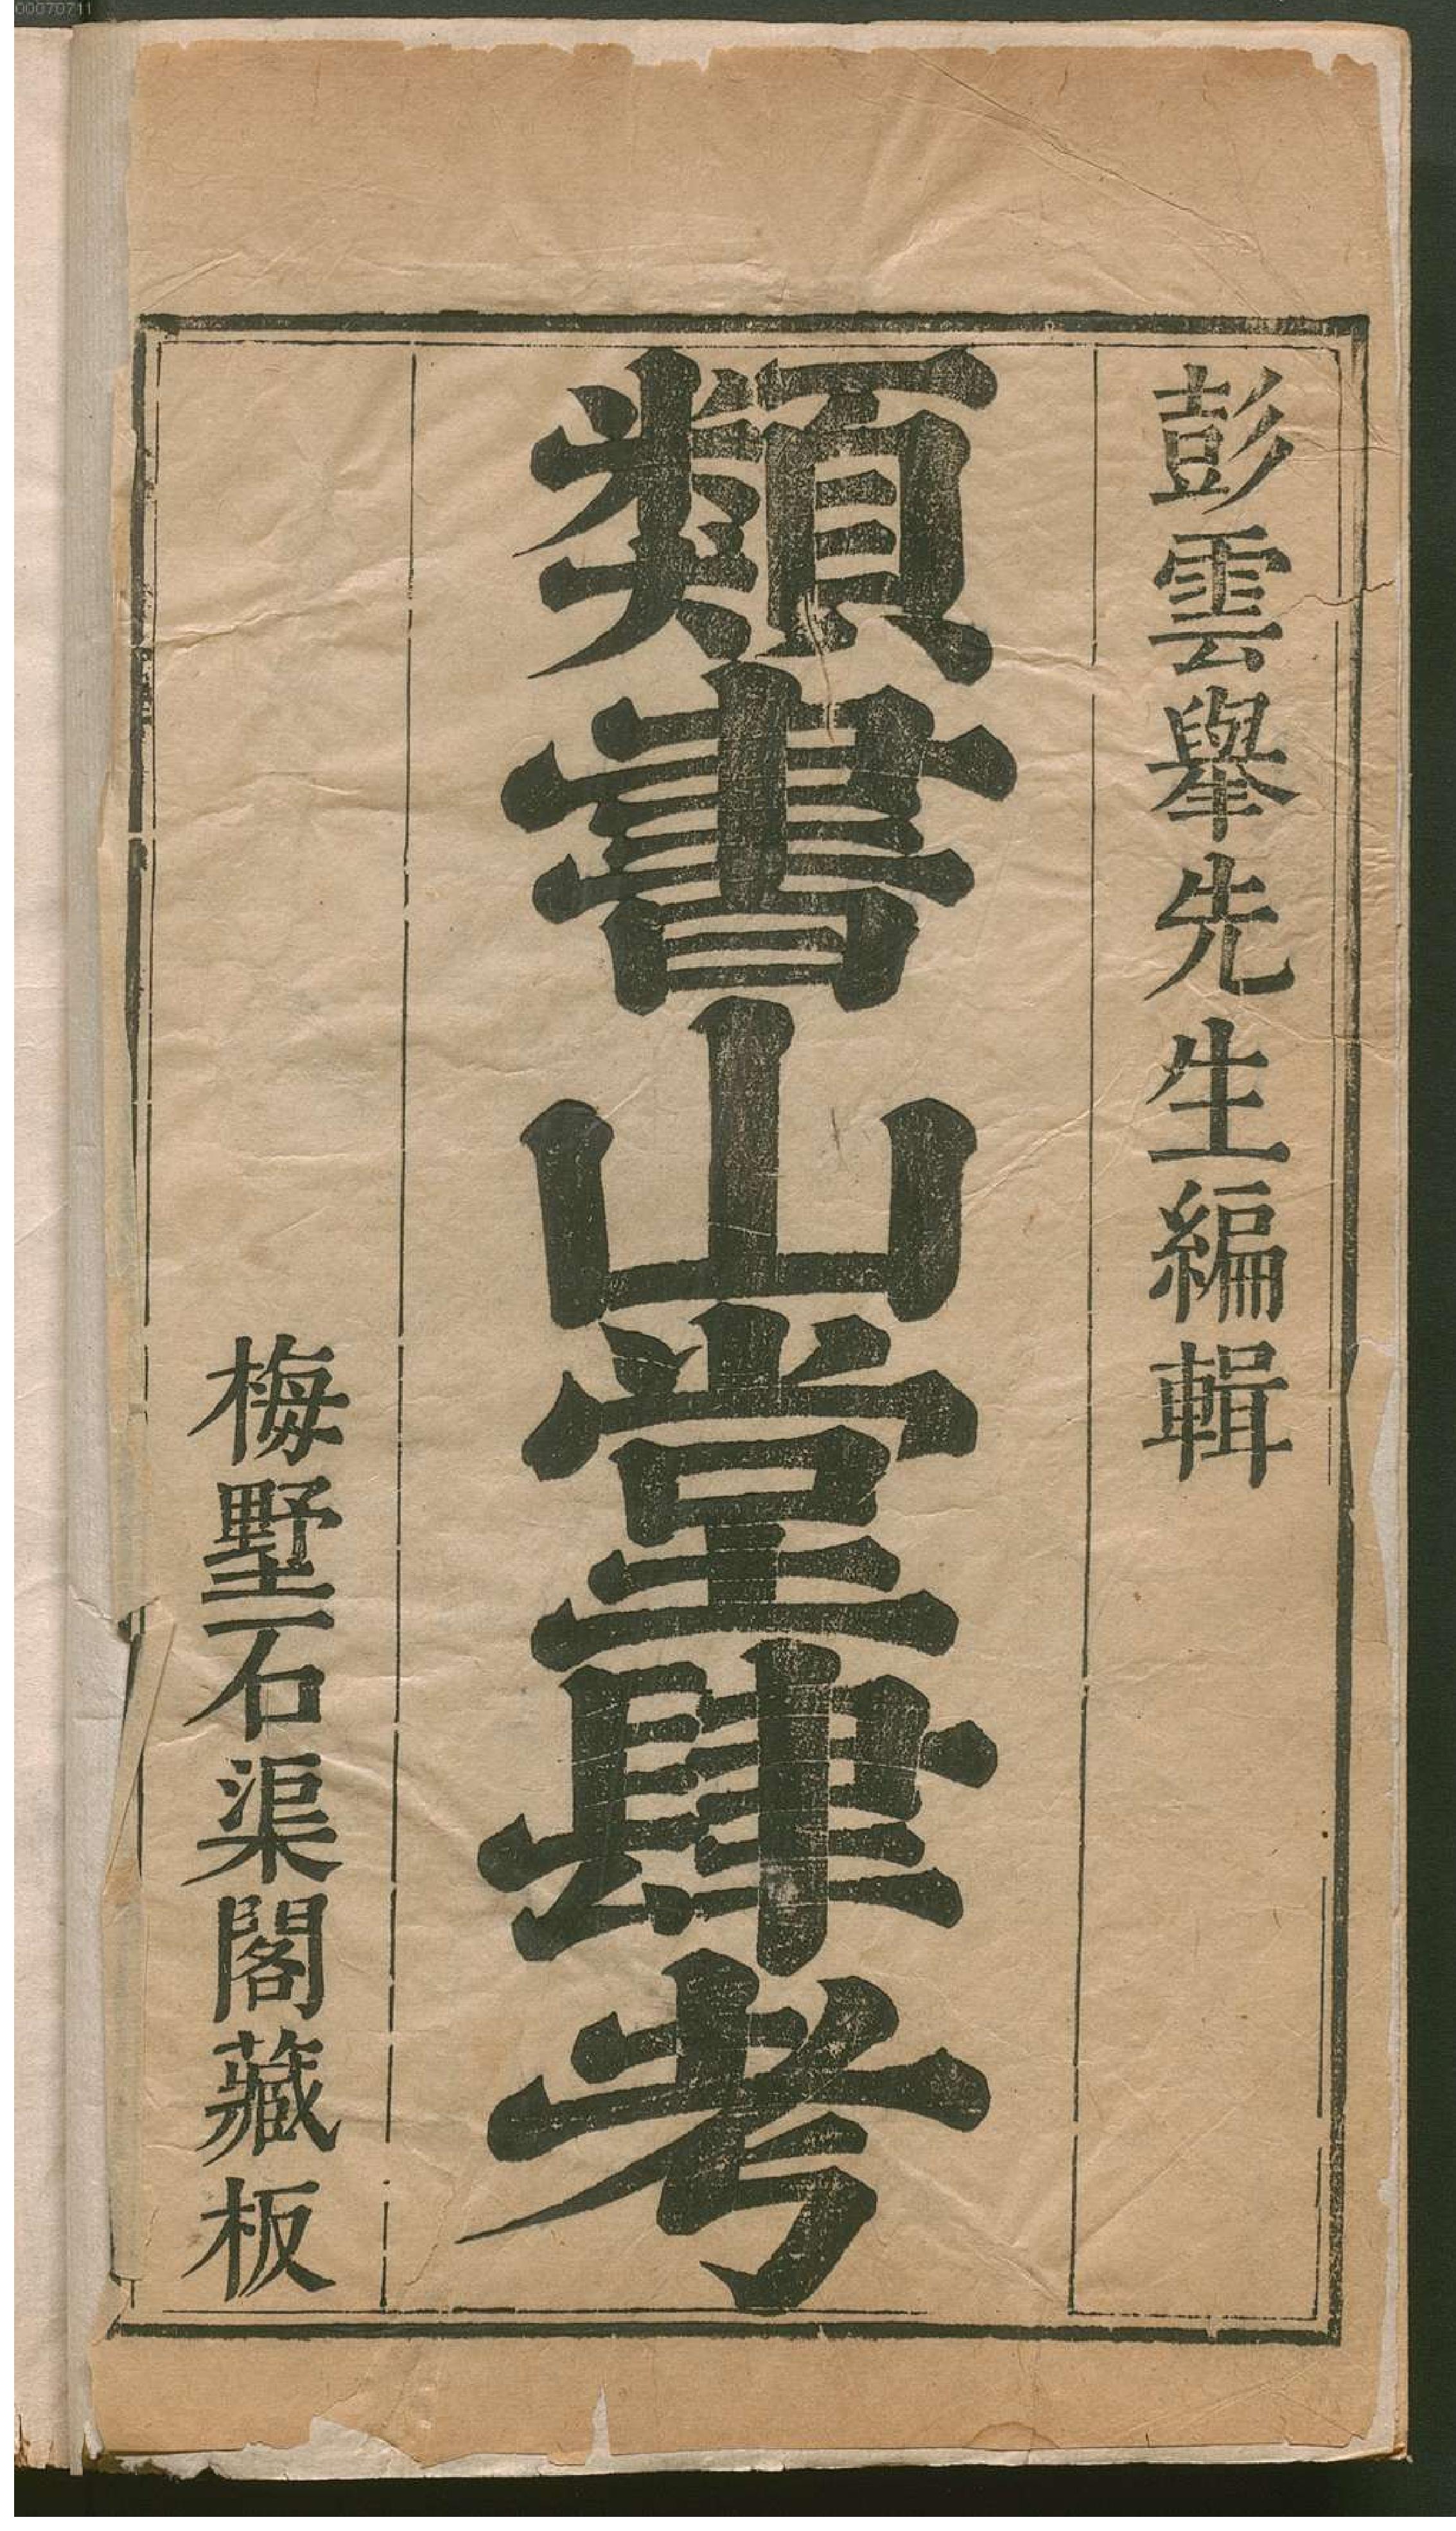 彭雲舉先生編輯
類書山堂肆考
梅墅石渠閣藏板
00070711